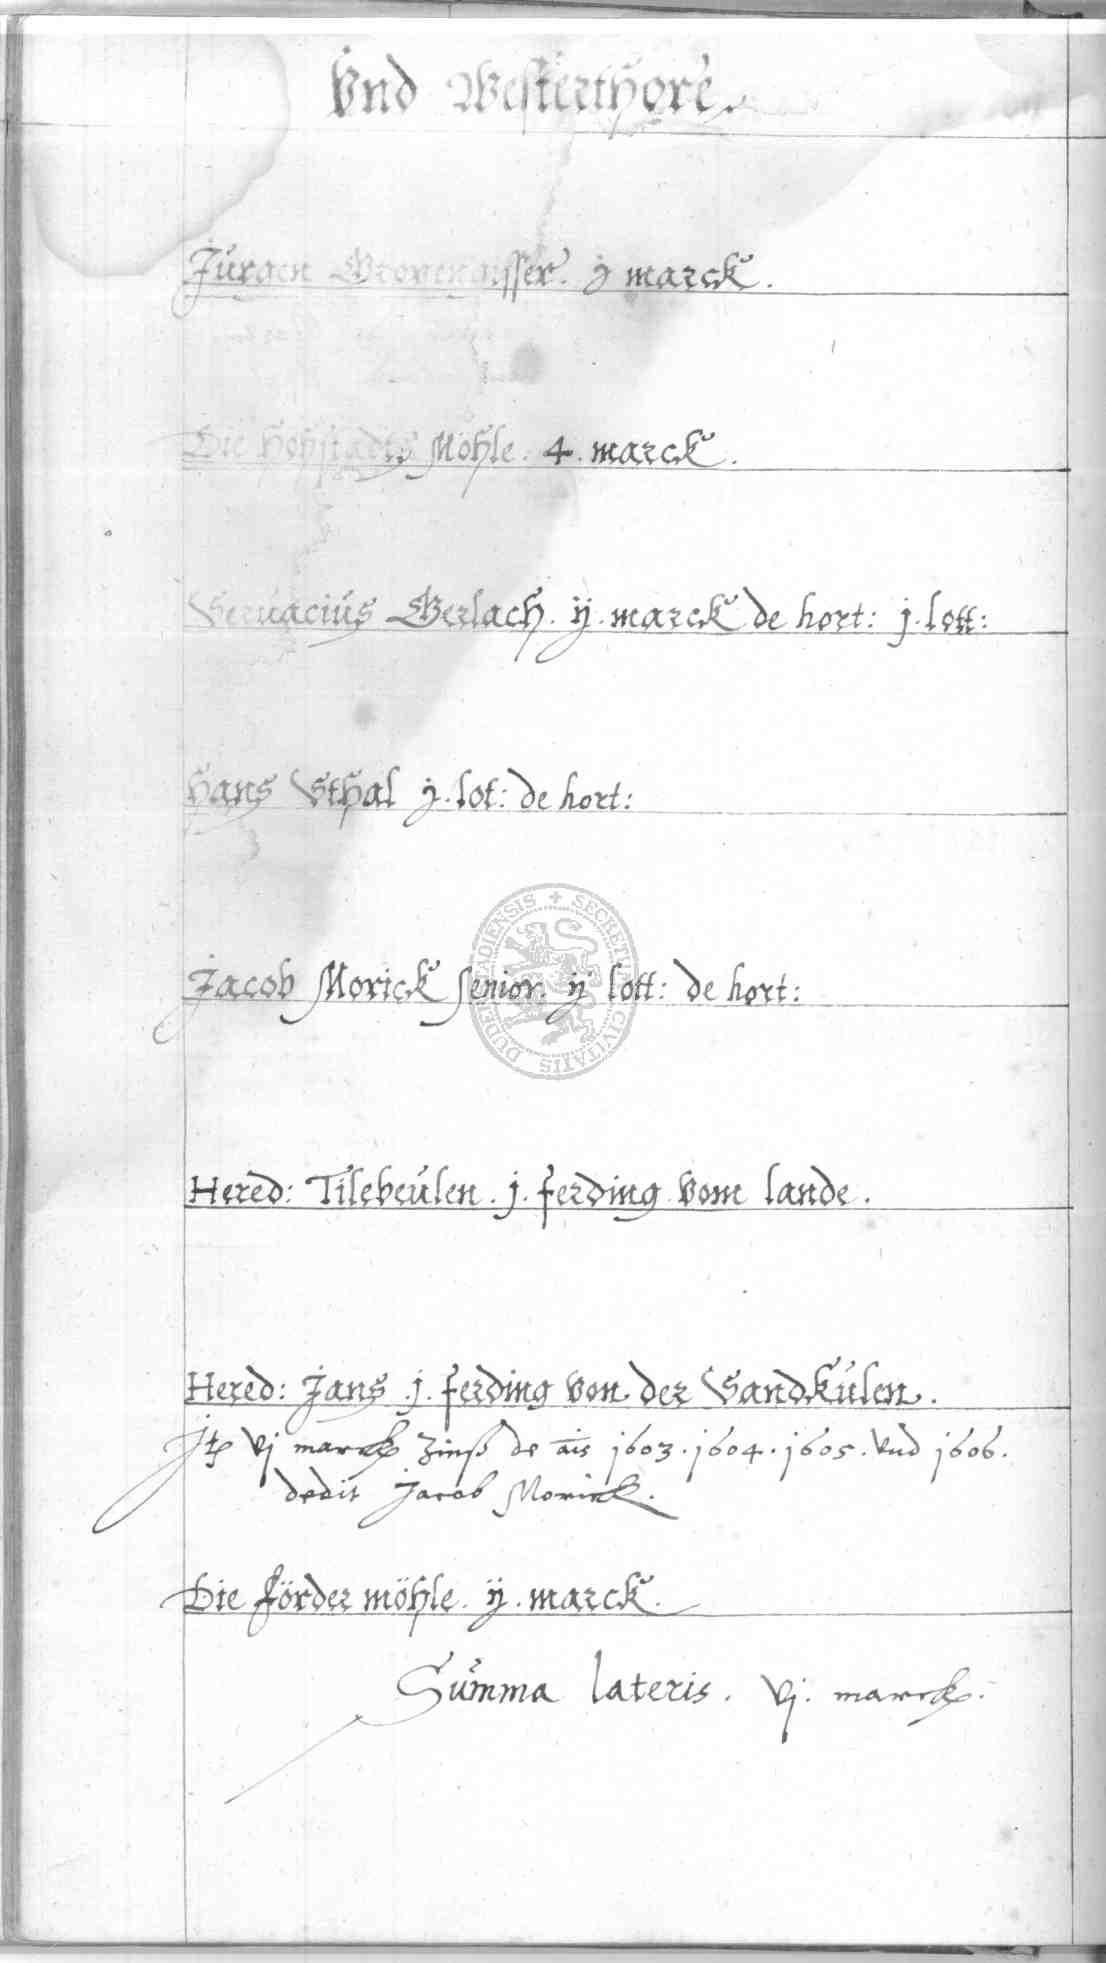 Vnd Westerthore.
Jürgen Gropengisser. j marck.
Die Hopstadts Möhle. 4. marck.
Seruacius Gerlach. ij. marck de hort: j. lott:
Hans Sthal j. lot: de hort:
Jacob Morick senior. ij lott: de hort:
Hered: Tilebeulen. j. ferding vom lande.
Hered: Jans j. ferding von der Sandkulen.
Jtp vj marck Zinß de ais 1603. 1604. 1605. Vnd 1606.
dedit Jacob Morick.
Die förder möhle. ij. marck.
Summa lateris. vj. marck.
SECRETUM CIVITATIS DUDERSTADIENSIS